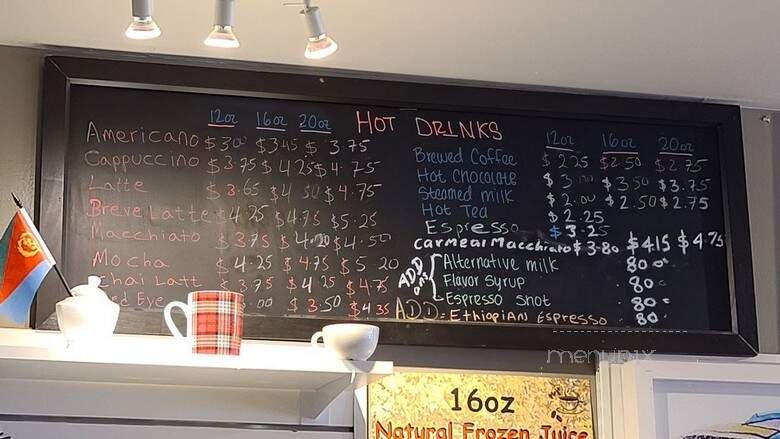 HOT DRINKS
12oz 16oz 20oz
Americano $3.00 $3.45 $3.75
Cappuccino $3.75 $4.25 $4.75
Latte $3.65 $4.50 $4.75
Breve Latte $4.25 $4.75 $5.25
Macchiato $3.75 $4.20 $4.50
Mocha $4.25 $4.75 $5.20
Chai Latt $3.75 $4.25 $4.75
Eye .00 $3.50 $4.35
12oz 16oz 20oz
Brewed Coffee $2.25 $2.50 $2.75
Hot Chocolate $3.00 $3.50 $3.75
Steamed milk $2.00 $2.50 $2.75
Hot Tea $2.25
Espresso $3.25
Carmeal Macchiato $3.80 $4.15 $4.75
ADD
Alternative milk .80
Flavor Syrup .80
Espresso shot .80
ADD - Ethiopian Espresso .80
menupix
16oz
Natural Frozen Juice